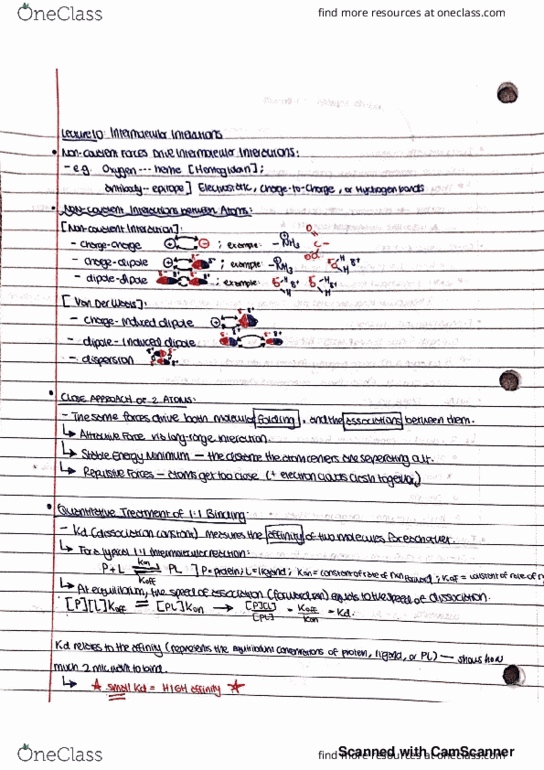 OneClass
find more resources at oneclass.com
Lecture 10: Intermolecular Interactions
• Non-covalent Forces Drive Intermolecular Interactions:
- e.g. Oxygen --- heme [Hemoglobin];
antibody - epitope] Electrostatic, charge-to-charge, or Hydrogen bonds
• Non-covalent Interactions between Atoms:
[Non-covalent Interaction]:
- charge-charge ; example:
- charge-dipole ; example:
- dipole-dipole ; example:
[Van Der Waals]:
- charge-induced dipole
- dipole-induced dipole
- dispersion
• CLOSE APPROACH OF 2 ATOMS:
- The same forces drive both molecular folding, and the associations between them.
↳ Attractive Force via long-range interaction.
↳ Stable Energy Minimum - the distance the atom centers are seperating at.
↳ Repulsive Forces - atoms get too close (+ electron clouds clash together)
• Quantitative Treatment of 1:1 Binding:
- Kd (dissociation constant) measures the affinity of two molecules for eachother.
↳ For a typical 1:1 intermolecular reaction:
P+L Kon Koff PL ] P=protein; L=ligand; Kon = constant of rate of rxn forward; Koff = constant of rate of
↳ At equilibrium, the speed of association (forward rxn) equals to the speed of dissociation.
[P][L]Koff = [PL]Kon → [P][L]/[PL] = Koff/Kon = Kd.
Kd relates to the affinity (represents the equilibrium concentrations of protein, ligand, or PL) — shows how
much 2 want to bind.
↳ ★ small Kd = HIGH affinity ★
Scanned with CamScanner
OneClass
find more resources at oneclass.com